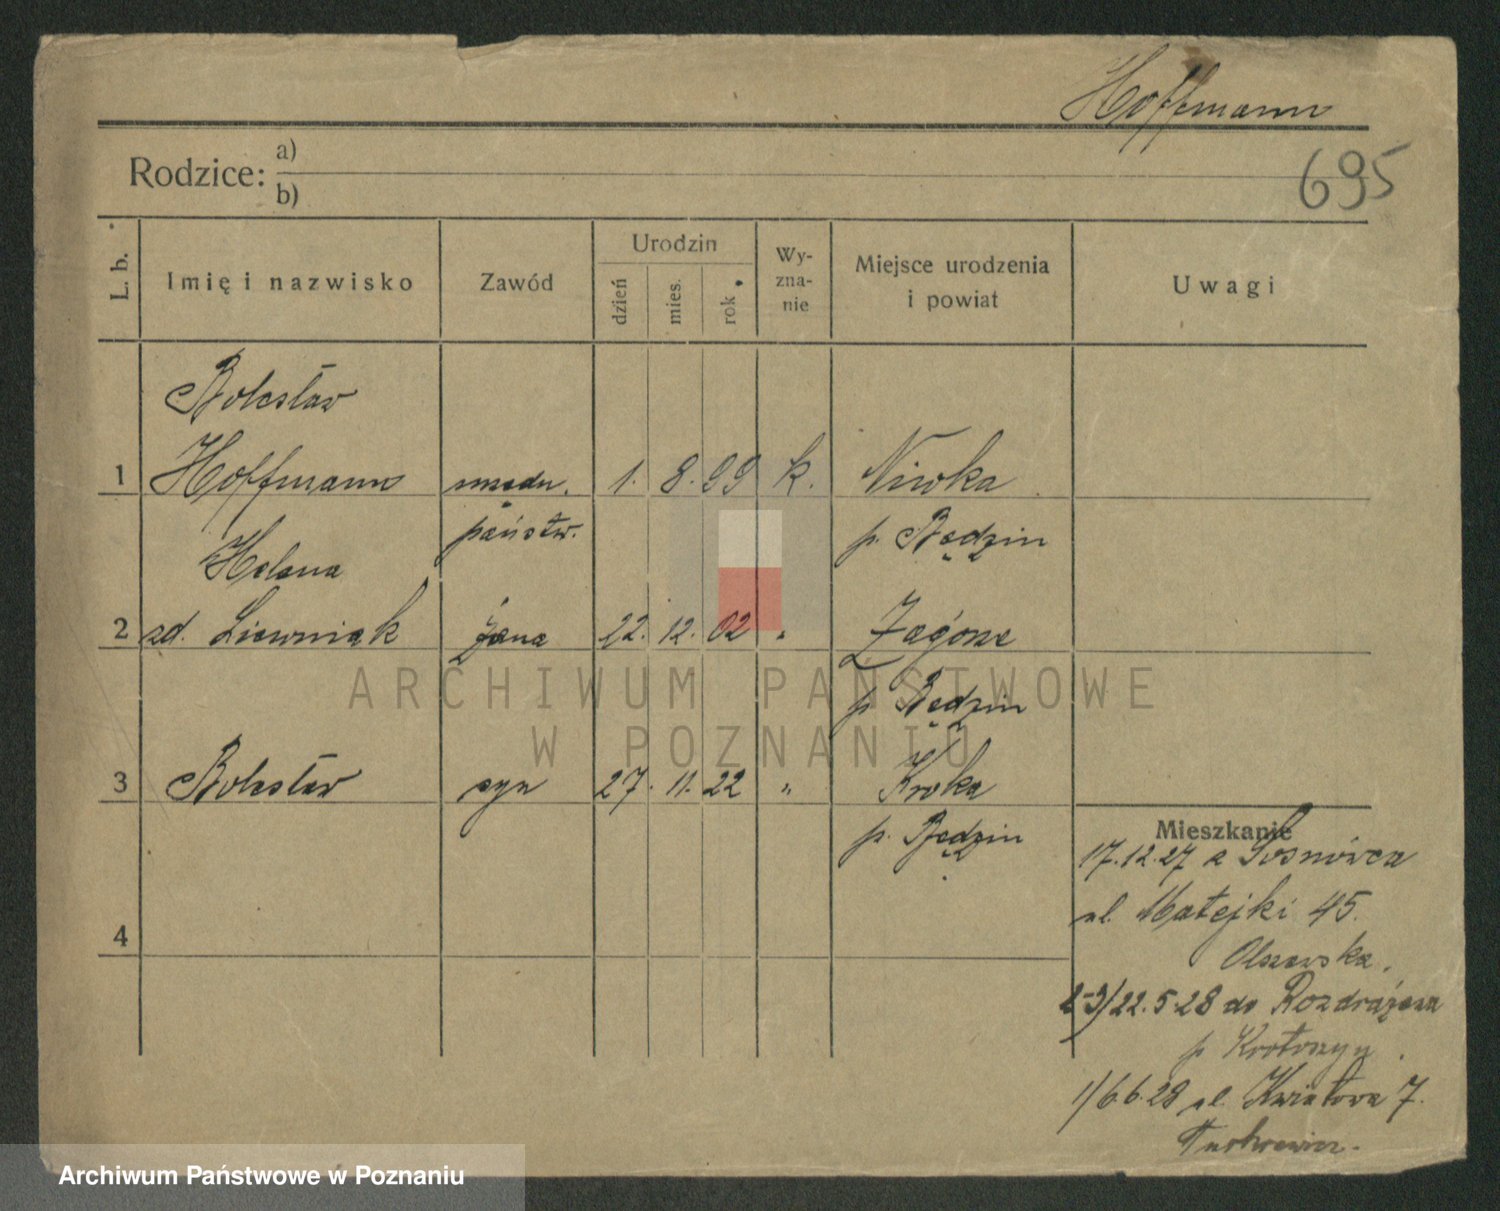 Hoffmann
695
Rodzice: a)
b)
L. b.
Imię i nazwisko
Zawód
Urodzin
dzień
mies.
rok
Wy-
zna-
nie
Miejsce urodzenia
i powiat
Uwagi
Bolesław
1 Hoffmann urzędn. 1. 8. 99 k. Niwka
państw. p. Będzin
Helena
2 zd. żona 22. 12. 02 " Zagórze
p. Będzin
3 Bolesław syn 27. 11. 22 "
p. Będzin
4
Mieszkanie
17.12.27 z Sosnowca
ul. Matejki 45.
Olszewska.
2-3/22.5.28 do Rozdrażewa
p Krotoszyn.
1/6.6.28 ul. Kwiatowa 7.
ARCHIWUM PAŃSTWOWE
W POZNANIU
Archiwum Państwowe w Poznaniu